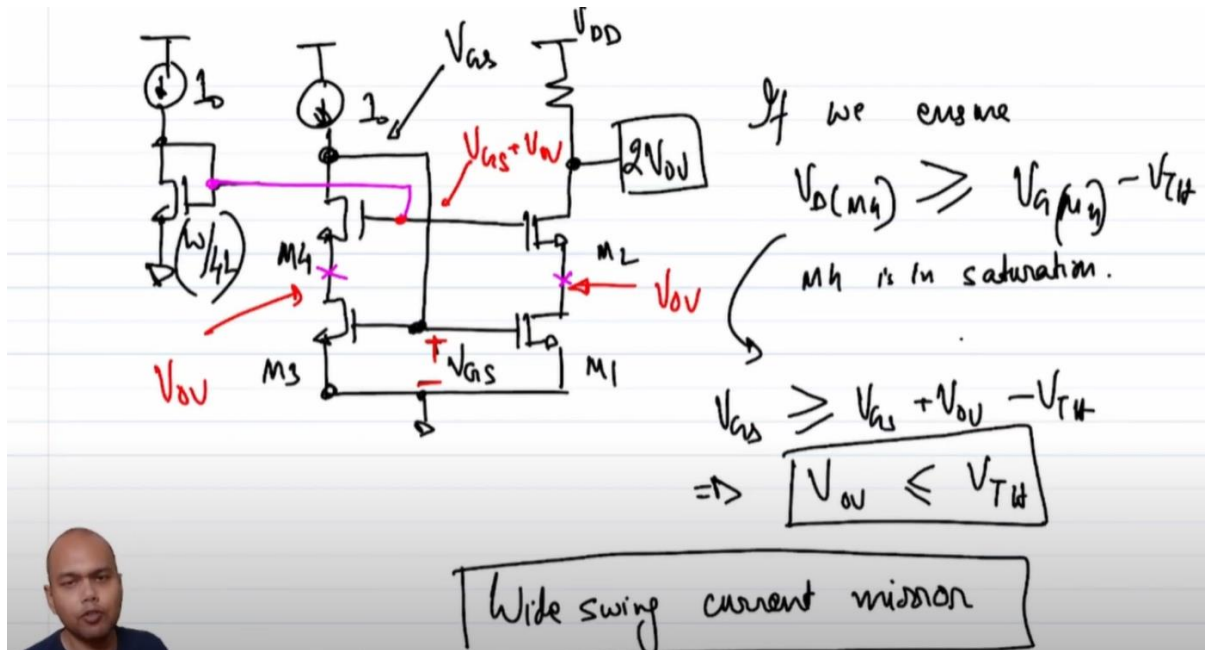 V_DD
V_GS
I_0
I_0
V_GS+V_OV
2V_OV
(W/4L)
M4
M2
V_OV
V_OV
M3
+
V_GS
−
M1
If we ensure
V_D(M4) ⩾ V_G(M4) - V_TH
M4 is in saturation.
V_GS ⩾ V_GS + V_OV - V_TH
⇒ V_OV ⩽ V_TH
Wide swing current mirror